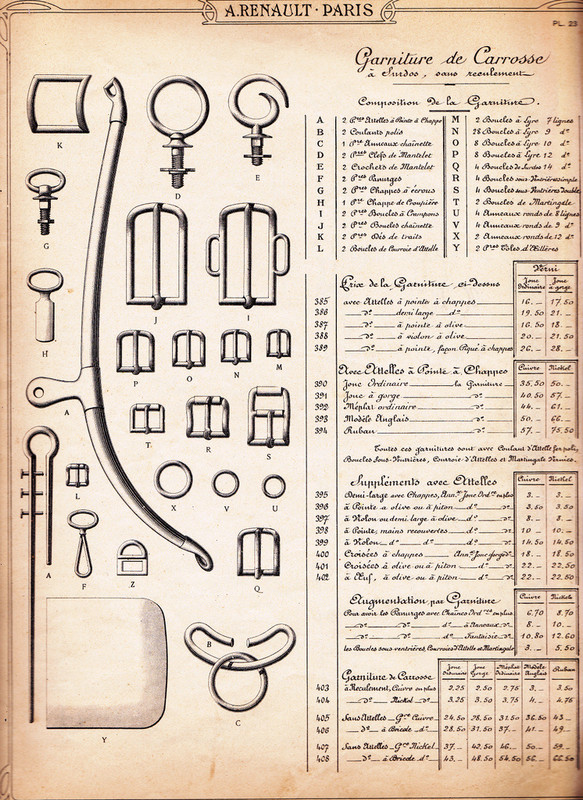 A. RENAULT · PARIS
PL. 23
Garniture de Carrosse
à Surdos, sans reculement
Composition de la Garniture.
A 2 Pres Attelles à Pointe à Chappe
B 2 Coulants polis
C 1 Pre Anneaux chaînette
D 2 Pres Clefs de Mantelet
E 2 Crochets de Mantelet
F 2 Pres Panurges
G 2 Pres Chappes à écrous
H 1 Pre Chappe de Croupière
I 2 Pres Boucles à Crampons
J 2 Pres Boucles chaînette
K 2 Pres Dés de traits
L 2 Boucles de Courroie d'Attelle
M 2 Boucles à Lyre 7 lignes
N 28 Boucles à Lyre 9 do
O 8 Boucles à Lyre 10 do
P 8 Boucles à Lyre 12 do
Q 4 Boucles de Surdos 14 do
R 4 Boucles sous-Ventrière simple
S 4 Boucles sous-Ventrière double
T 2 Boucles de Martingale
U 4 Anneaux ronds de 8 lignes
V 4 Anneaux ronds de 9 do
X 2 Anneaux ronds de 12 do
Y 2 Pres Tôles d'Œillères
Prix de la Garniture ci-dessus
Verni
Jonc Ordinaire Jonc à gorge
385 avec Attelles à pointe à chappes 16. - 17.50
386 do demi large do 19.50 21. -
387 do à pointe à olive 16.50 18. -
388 do à violon à olive 20. - 21.50
389 do à pointe, façon Piqué à chappes 26. - 28. -
Avec Attelles à Pointe à Chappes
Cuivre Nickel
390 Jonc Ordinaire la Garniture 35.50 50. -
391 Jonc à gorge do 40.50 57. -
392 Méplat ordinaire do 44. - 61. -
393 Modèle Anglais do 50. - 66. -
394 Ruban do 57. - 75.50
Toutes ces garnitures sont avec Coulant d'Attelle fer poli,
Boucles Sous-Ventrières, Courroie d'Attelles et Martingale Vernies.
Suppléments avec Attelles
Cuivre Nickel
395 Demi-large avec Chappes, Annx Jonc Ordre en plus 3. - 3. -
396 à Pointe à olive ou à piton do do 3.50 3.50
397 à Violon ou demi large à olive do 8. - 8. -
398 à Pointe, mains recouvertes do do 10. - 10. -
399 à Violon do do do do 14. - 14. -
400 Croisées à chappes Annx Jonc gorge do 18. - 18.50
401 Croisées à olive ou à piton do do 22. - 22.50
402 à Œuf, à olive ou à piton do do 22. - 22.50
Augmentation par Garniture
Cuivre Nickel
Pour avoir les Panurges avec Chaînes Ordres en plus 6.70 8.70
do do do à Anneaux do 8. - 10. -
do do do Fantaisie do 10.80 12.60
les Boucles sous-ventrière, Courroies d'Attelles et Martingale 3. - 5.50
Garniture de Carrosse
Jonc Ordinaire Jonc Gorge Méplat Ordinaire Modèle Anglais Ruban
403 à Reculement, Cuivre en plus 2.25 2.50 2.75 3. - 3.50
404 do Nickel do 3.25 3.50 4. - 4.75
405 Sans Attelles Gre Cuivre 24.50 28.50 31.50 36.50 43. -
406 do à Bricole do 28.50 31.50 37. - 41. - 49. -
407 Sans Attelles Gre Nickel 37. - 42.50 46. - 50. - 59. -
408 do à Bricole do 43. - 48.50 54.50 56. - 66.50
K
D
E
G
J
I
H
P
O
N
M
A
T
R
S
L
X
V
U
A
F
Z
Q
B
C
Y